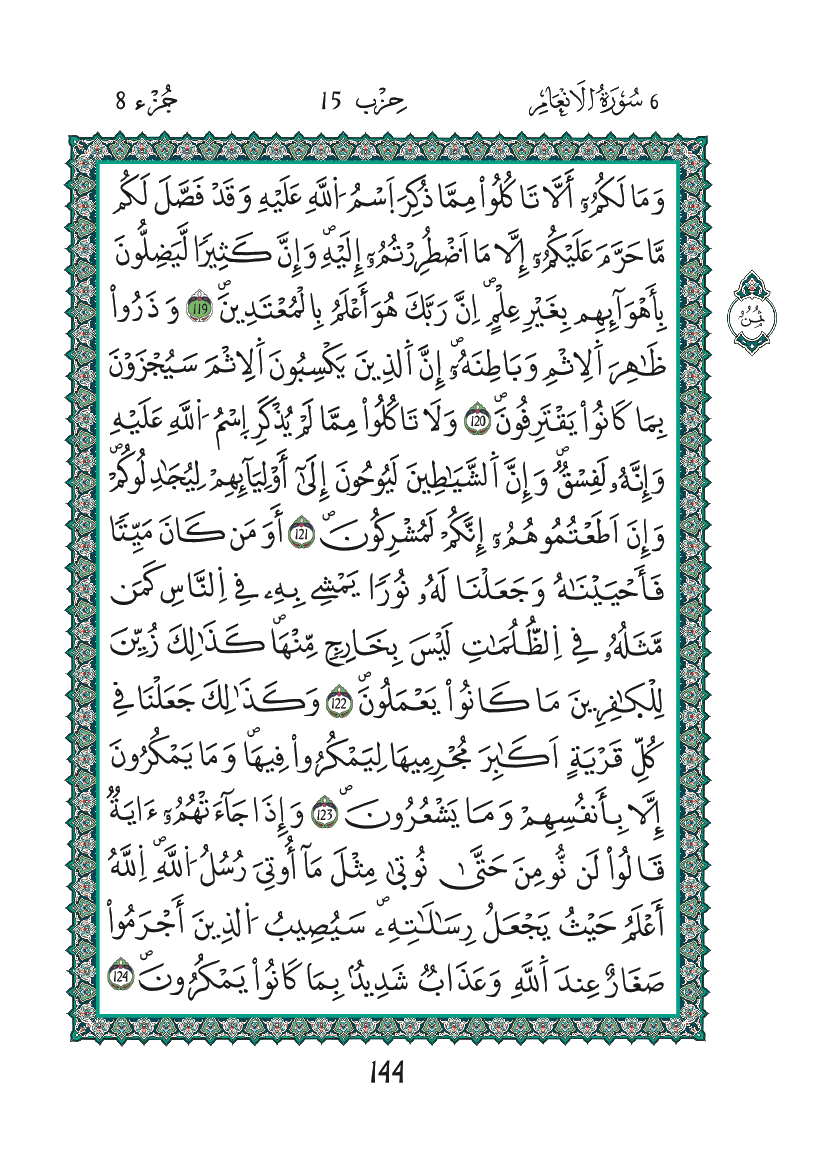 6 سُورَةُ الَانْعَامِ
حِزْب 15
جُزْء 8
وَمَا لَكُمُۥٓ أَلَّا تَاكُلُواْ مِمَّا ذُكِرَ اَسْمُ اُ۬للَّهِ عَلَيْهِ وَقَدْ فَصَّلَ لَكُم
مَّا حَرَّمَ عَلَيْكُمُۥٓ إِلَّا مَا اَضْطُرِرْتُمُۥٓ إِلَيْهِۖ وَإِنَّ كَثِيرًا لَّيَضِلُّونَ
بِأَهْوَآئِهِم بِغَيْرِ عِلْمٍۖ اِنَّ رَبَّكَ هُوَ أَعْلَمُ بِالْمُعْتَدِينَۖ 119 وَذَرُواْ
ظَٰهِرَ اَ۬لِاثْمِ وَبَاطِنَهُۥٓۖ إِنَّ اَ۬لذِينَ يَكْسِبُونَ اَ۬لِاثْمَ سَيُجْزَوْنَ
بِمَا كَانُواْ يَقْتَرِفُونَۖ 120 وَلَا تَاكُلُواْ مِمَّا لَمْ يُذْكَرِ اِسْمُ اُ۬للَّهِ عَلَيْهِ
وَإِنَّهُۥ لَفِسْقٌۖ وَإِنَّ اَ۬لشَّيَٰطِينَ لَيُوحُونَ إِلَىٰٓ أَوْلِيَآئِهِمْ لِيُجَٰدِلُوكُمْۖ
وَإِنَ اَطَعْتُمُوهُمُۥٓ إِنَّكُمْ لَمُشْرِكُونَۖ 121 أَوَ مَن كَانَ مَيِّتًا
فَأَحْيَيْنَٰهُ وَجَعَلْنَا لَهُۥ نُورًا يَمْشِے بِهِۦ فِے اِ۬لنَّاسِ كَمَن
مَّثَلُهُۥ فِے اِ۬لظُّلُمَٰتِ لَيْسَ بِخَارِجٍ مِّنْهَاۖ كَذَٰلِكَ زُيِّنَ
لِلْكٰ۪فِرِينَ مَا كَانُواْ يَعْمَلُونَۖ 122 وَكَذَٰلِكَ جَعَلْنَا فِے
كُلِّ قَرْيَةٍ اَكَٰبِرَ مُجْرِمِيهَا لِيَمْكُرُواْ فِيهَاۖ وَمَا يَمْكُرُونَ
إِلَّا بِأَنفُسِهِمْ وَمَا يَشْعُرُونَۖ 123 وَإِذَا جَآءَتْهُمُۥٓ ءَايَةٌ
قَالُواْ لَن نُّومِنَ حَتَّىٰ نُوت۪ىٰ مِثْلَ مَآ أُوتِيَ رُسُلُ اُ۬للَّهِۖ اِ۬للَّهُ
أَعْلَمُ حَيْثُ يَجْعَلُ رِسَٰلَٰتِهِۦۖ سَيُصِيبُ اُ۬لذِينَ أَجْرَمُواْ
صَغَارٌ عِندَ اَ۬للَّهِ وَعَذَابٌ شَدِيدُۢ بِمَا كَانُواْ يَمْكُرُونَۖ 124
ثُمُن
144